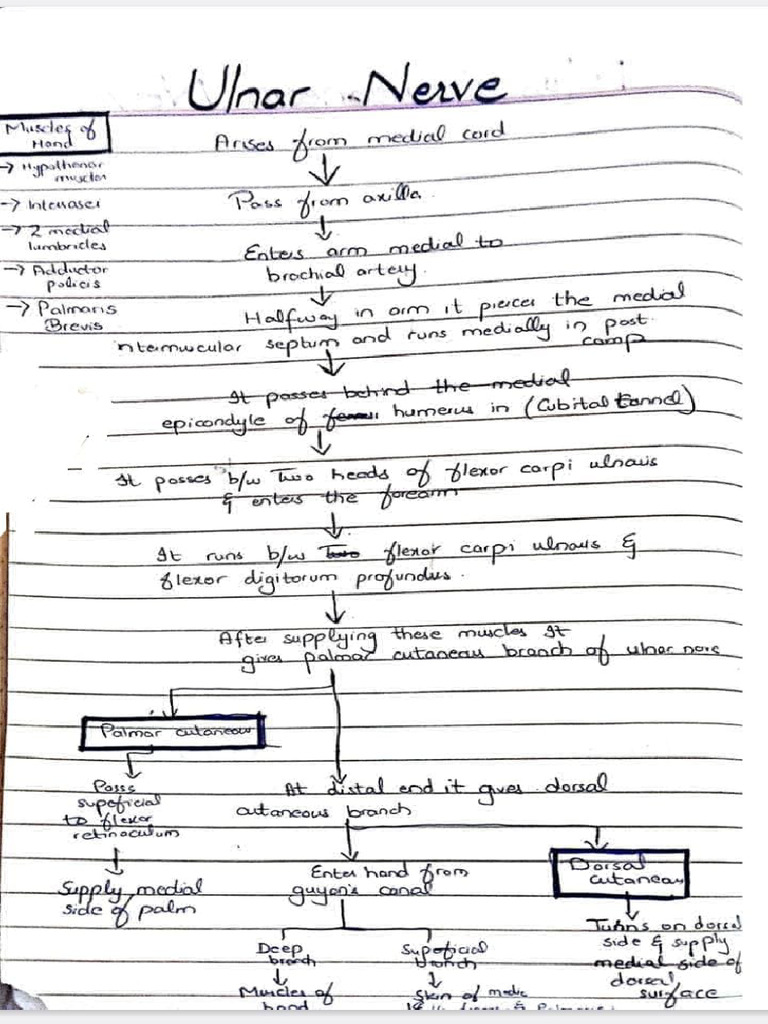 Ulnar Nerve
Muscles of
Hand
→ Hypothenar
muscles
→ Interossei
→ 2 medial
lumbricles
→ Adductor
policis
→ Palmaris
Brevis
Arises from medial cord
Pass from axilla.
Enters arm medial to
brachial artery.
Halfway in arm it pierces the medial
intermuscular septum and runs medially in post.
comp
It passes behind the medial
epicondyle of humerus in (Cubital tunnel)
It passes b/w Two heads of flexor carpi ulnaris
& enters the forearm
It runs b/w Two flexor carpi ulnaris &
flexor digitorum profundus.
After supplying these muscles It
gives palmar cutaneous branch of ulnar
Palmar cutaneous
Passs
supeficial
to flexor
retinaculum
Supply medial
side of palm
At distal end it gives dorsal
cutaneous branch
Enter hand from
guyon's canal
Dorsal
cutaneau
Turns on dorsal
side & supply
medial side of
dorsal
surface
Deep
branch
Muscles of
hand
Supeficial
branch
Skin of